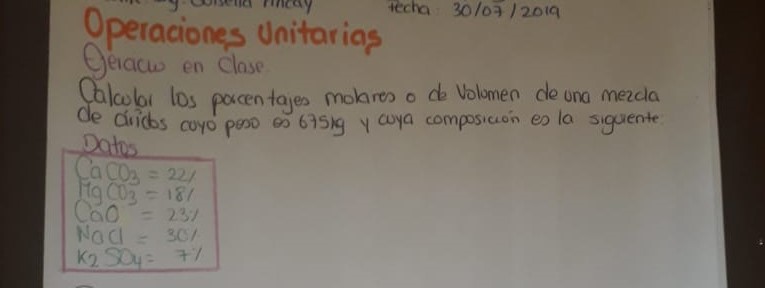 fecha: 30/07/2019
Operaciones Unitarias
Ejercicio en Clase.
Calcular los porcentajes molares o de Volumen de una mezcla
de áridos cuyo peso es 675kg y cuya composición es la siguiente:
Datos
CaCO3 = 22%
MgCO3 = 18%
CaO = 23%
NaCl = 30%
K2SO4 = 7%